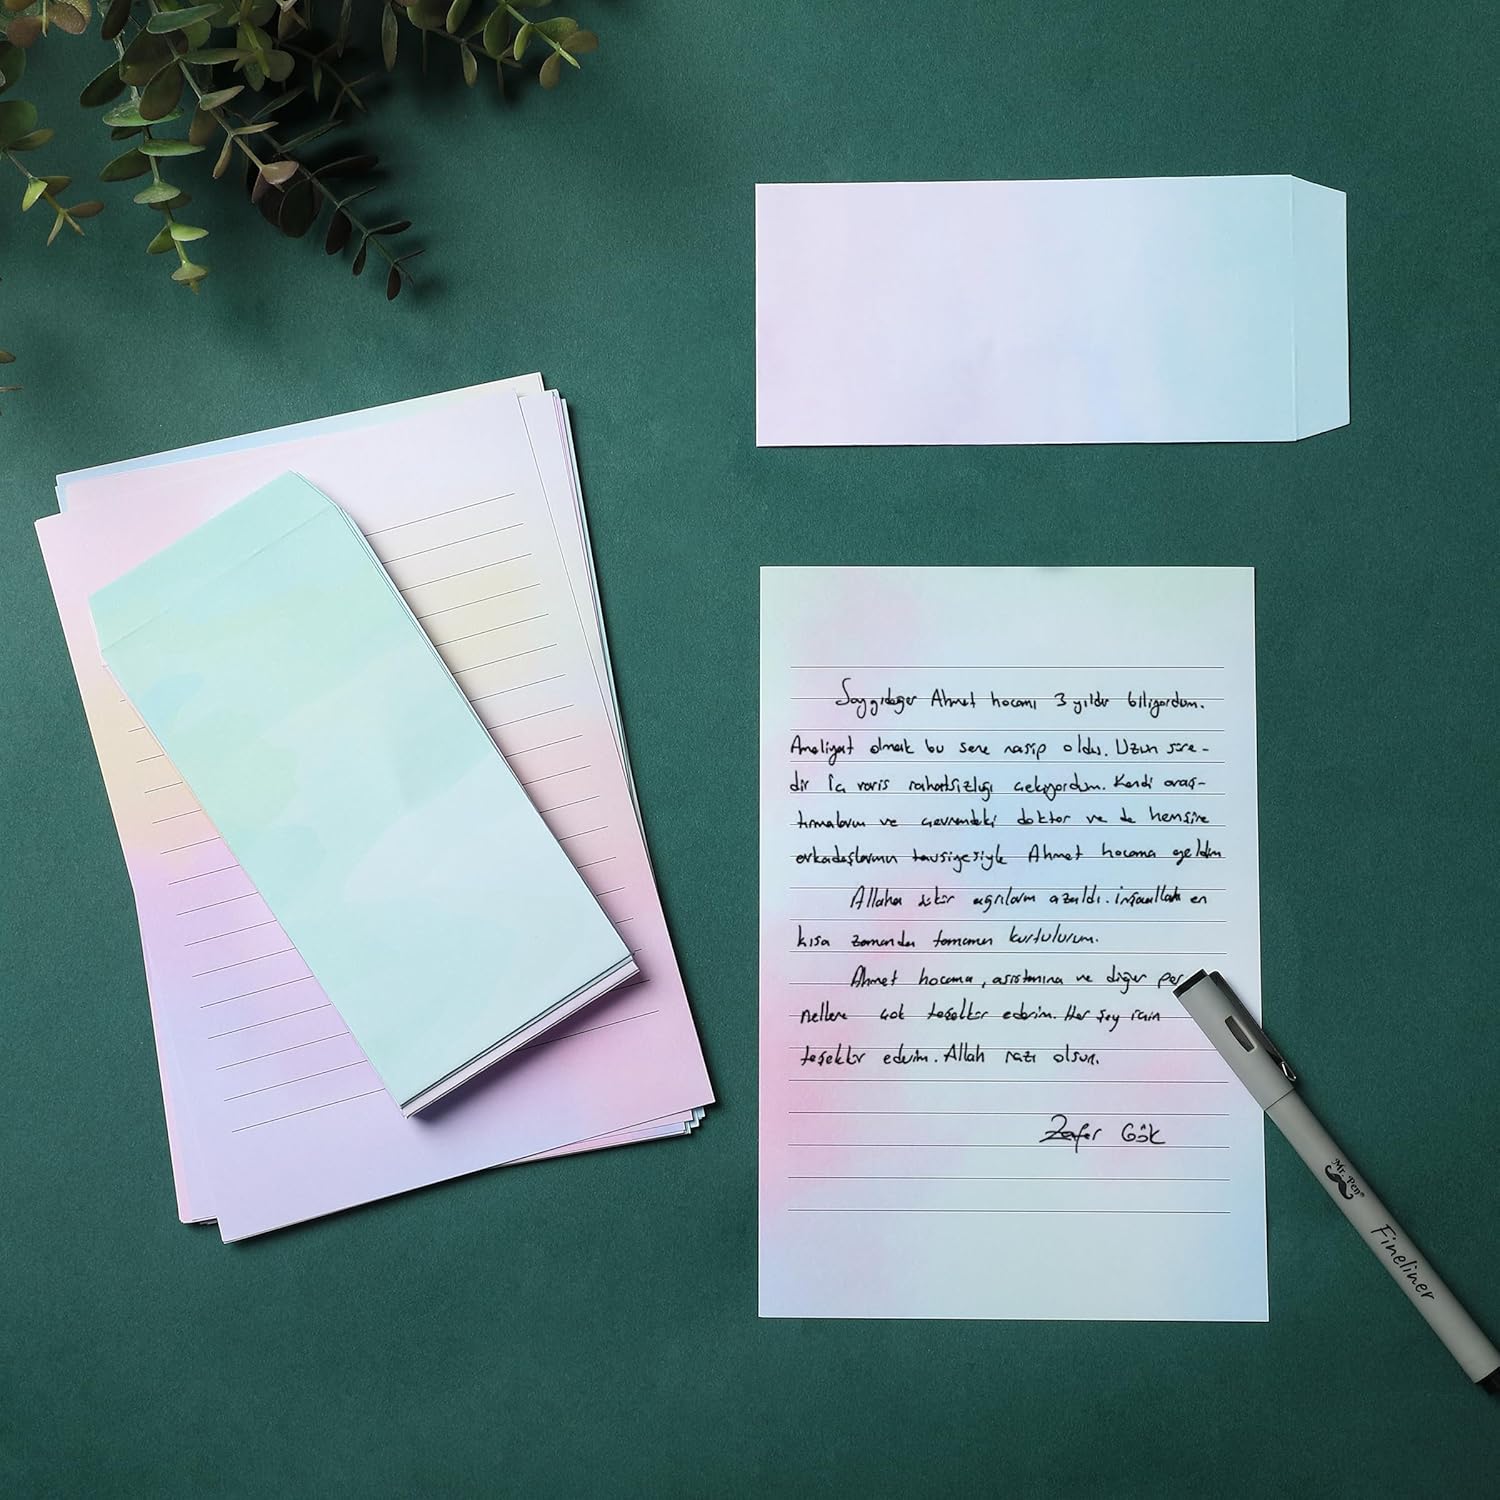 Saygıdeğer Ahmet hocamı 3 yıldır biliyordum.
Ameliyat olmak bu sene nasip oldu. Uzun süre-
dir İç varis rahatsızlığı çekiyordum. Kendi araş-
tırmalarım ve çevremdeki doktor ve de hemşire
arkadaşlarımın tavsiyesiyle Ahmet hocama geldim
Allaha şükür ağrılarım azaldı. inşaallah en
kısa zamanda tamamen kurtulurum.
Ahmet hocama, asistanına ve diğer per
nellere çok teşekkür ederim. Her şey için
teşekkür ederim. Allah razı olsun.
Zafer Gök
Mr. Pen®
Fineliner